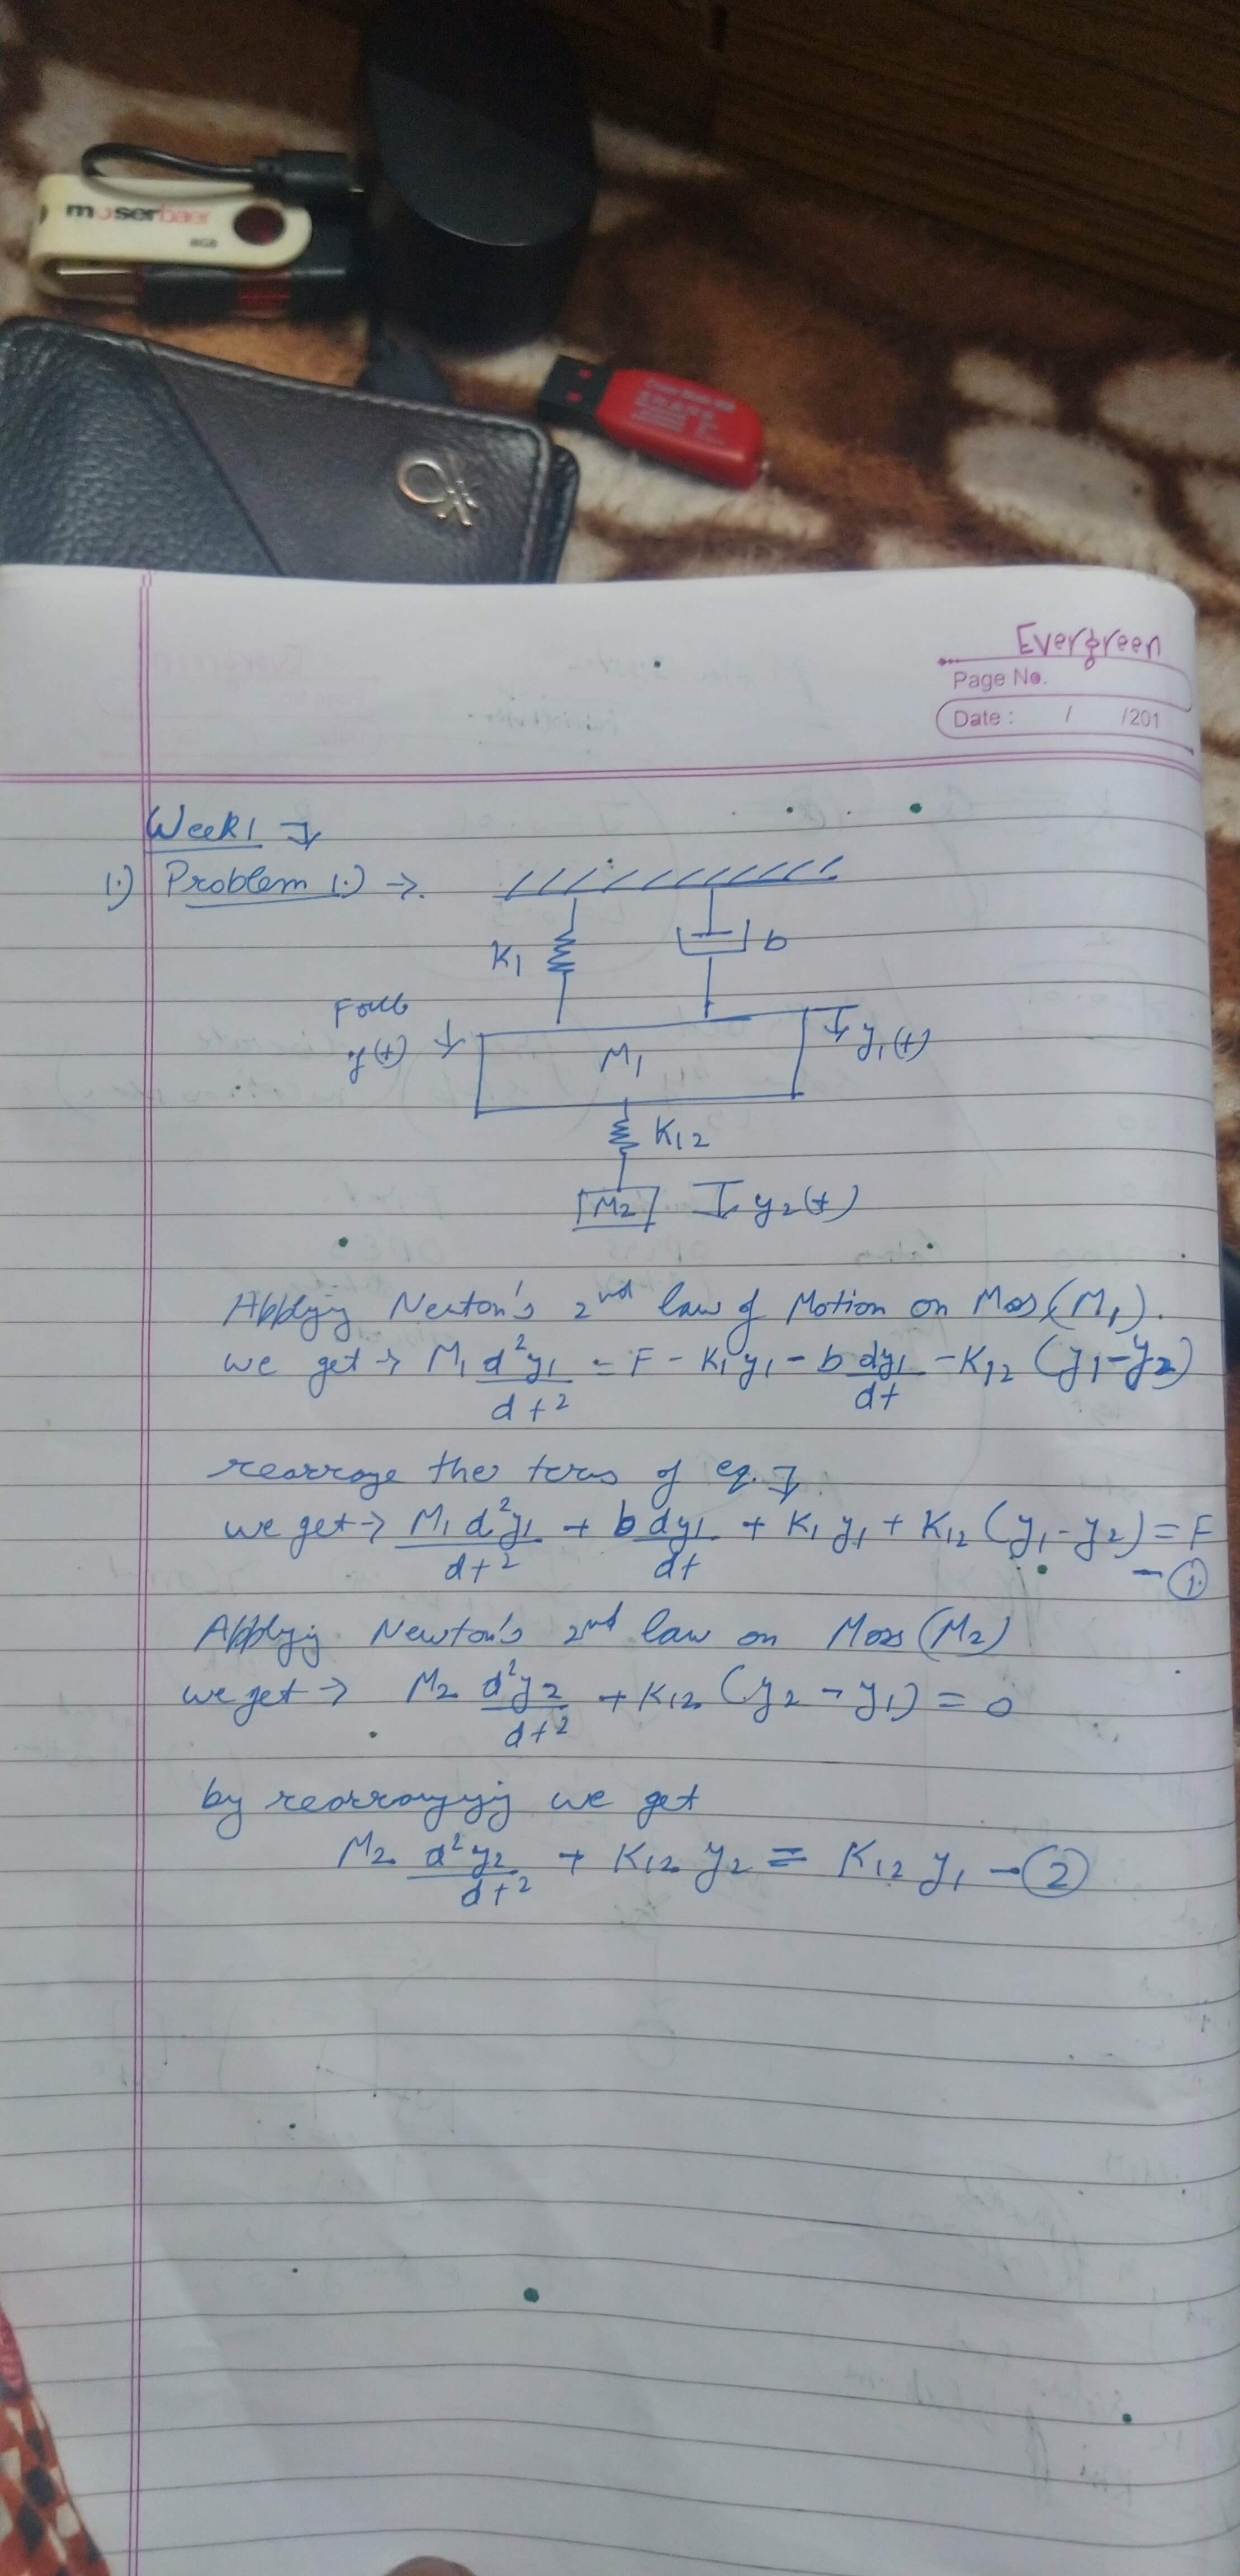 moserbaer
8GB
Evergreen
Page No.
Date : / /201
Week 1
1.) Problem 1.) →.
K1
b
Force
M1
y1(t)
K12
M2
y2(t)
Applying Newton's 2nd law of Motion on Mass (M1).
we get → M1 d²y1/dt² = F - K1y1 - b dy1/dt - K12 (y1-y2)
rearrange the terms of eq.
we get → M1 d²y1/dt² + b dy1/dt + K1 y1 + K12 (y1-y2) = F
- ①
Applying Newton's 2nd law on Mass (M2)
we get → M2 d²y2/dt² + K12 (y2 - y1) = 0
by rearranging we get
M2 d²y2/dt² + K12 y2 = K12 y1 - ②